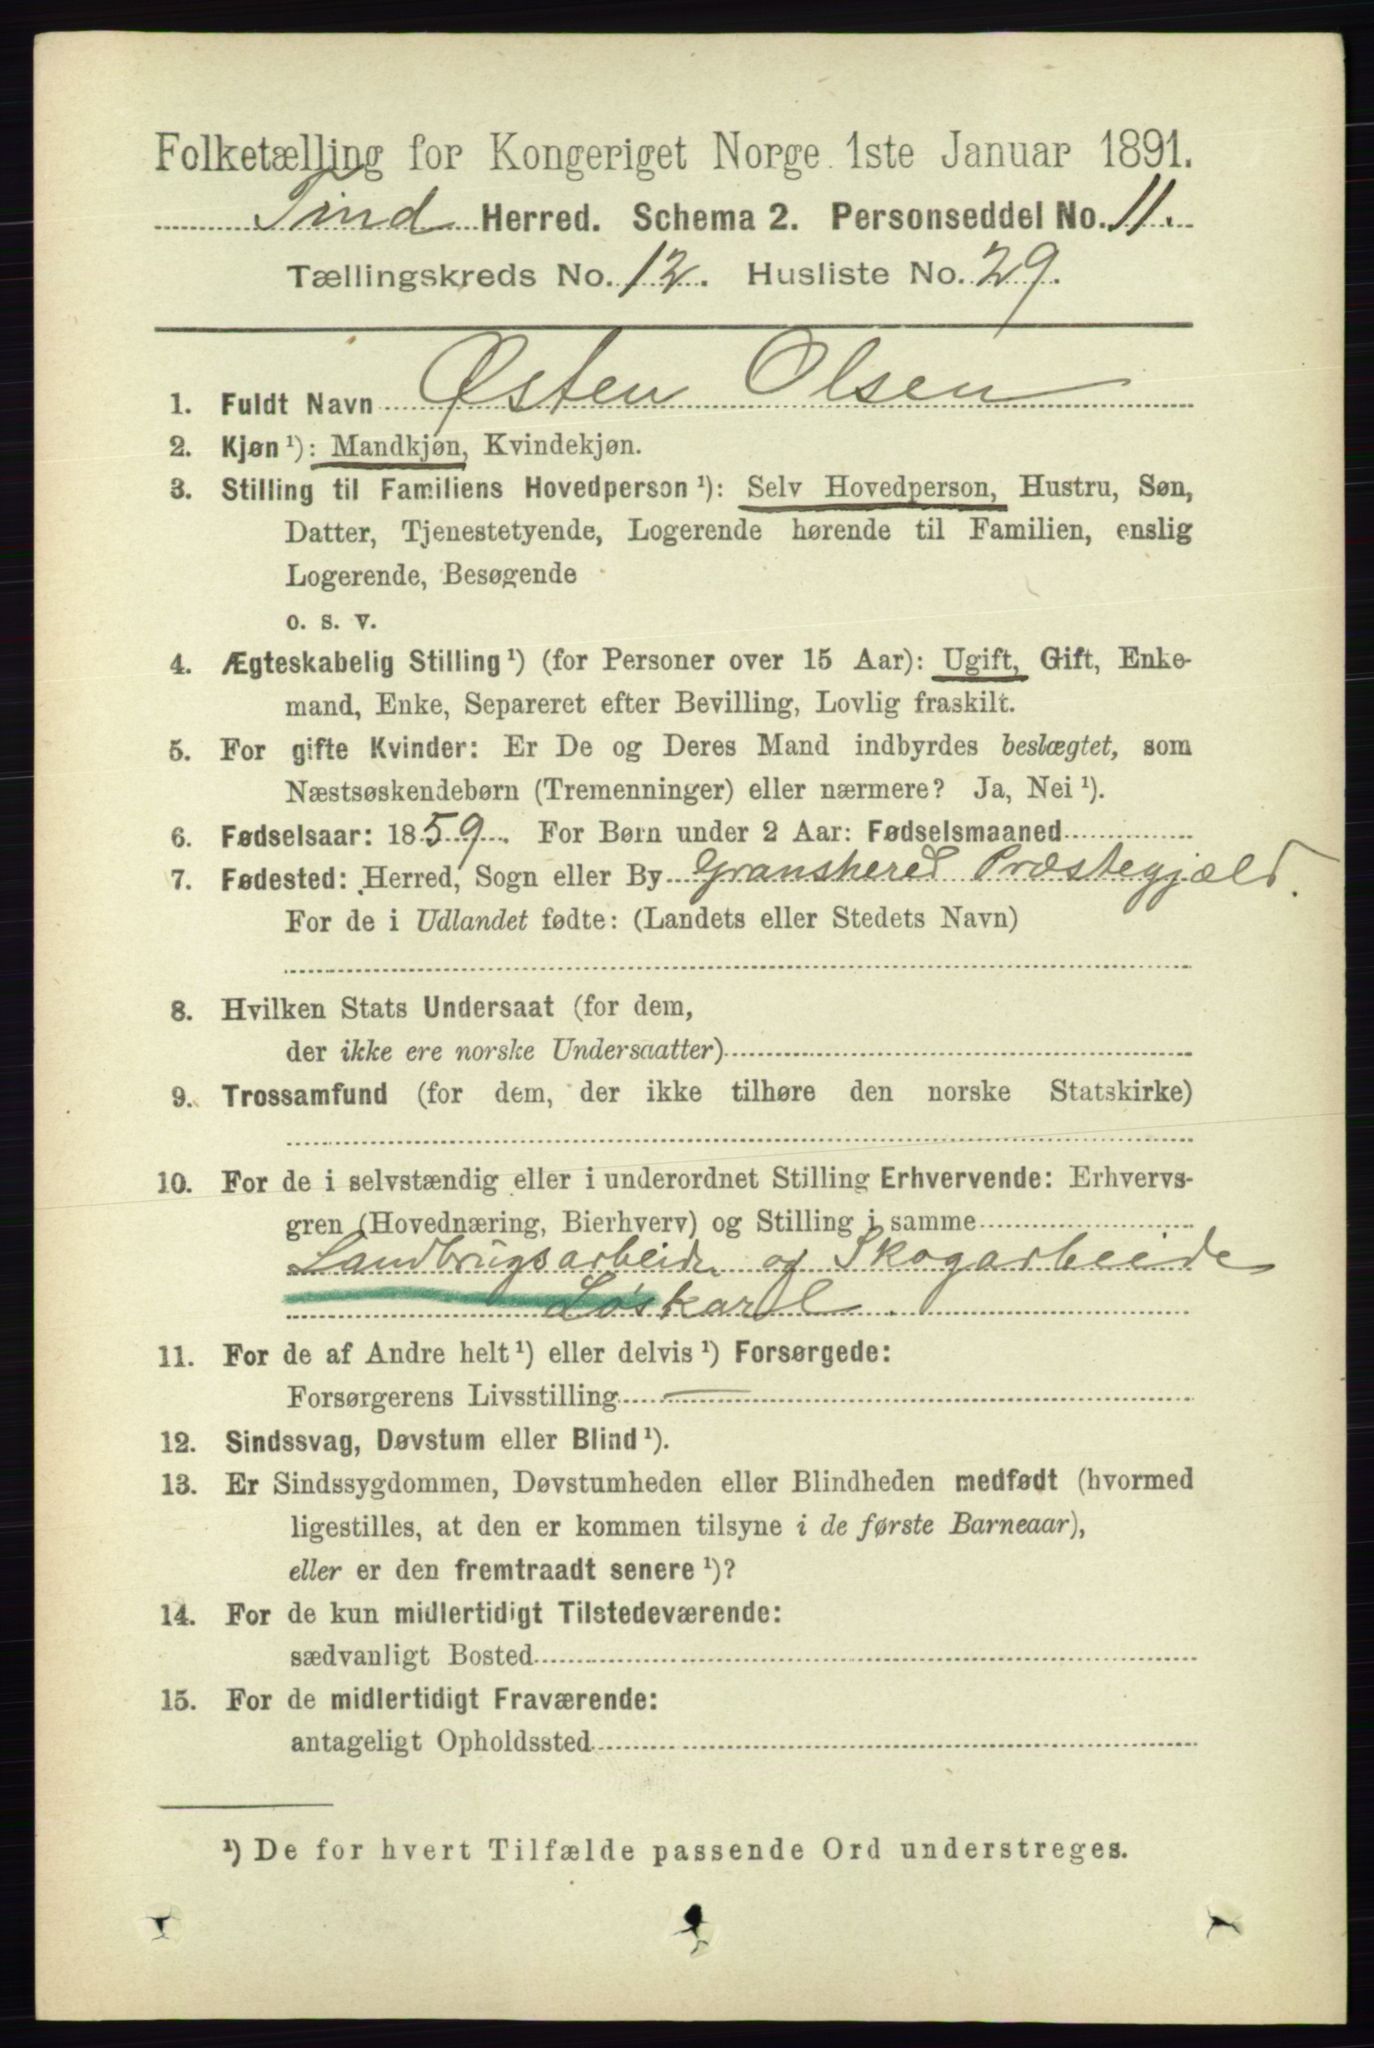 Folketælling for Kongeriget Norge 1ste Januar 1891.
Tind Herred. Schema 2. Personseddel No. 11.
Tællingskreds No. 12. Husliste No. 29.
1. Fuldt Navn Østen Olsen
2. Kjøn ¹): Mandkjøn, Kvindekjøn.
3. Stilling til Familiens Hovedperson ¹): Selv Hovedperson, Hustru, Søn,
Datter, Tjenestetyende, Logerende hørende til Familien, enslig
Logerende, Besøgende
o. s. v.
4. Ægteskabelig Stilling ¹) (for Personer over 15 Aar): Ugift, Gift, Enke-
mand, Enke, Separeret efter Bevilling, Lovlig fraskilt.
5. For gifte Kvinder: Er De og Deres Mand indbyrdes beslægtet, som
Næstsøskendebørn (Tremenninger) eller nærmere? Ja, Nei ¹).
6. Fødselsaar: 1859. For Børn under 2 Aar: Fødselsmaaned
7. Fødested: Herred, Sogn eller By Granshered Præstegjæld.
For de i Udlandet fødte: (Landets eller Stedets Navn)
8. Hvilken Stats Undersaat (for dem,
der ikke ere norske Undersaatter)
9. Trossamfund (for dem, der ikke tilhøre den norske Statskirke)
10. For de i selvstændig eller i underordnet Stilling Erhvervende: Erhvervs-
gren (Hovednæring, Bierhverv) og Stilling i samme
Landbrugsarbeide og Skogarbeide
Løskarl.
11. For de af Andre helt ¹) eller delvis ¹) Forsørgede:
Forsørgerens Livsstilling —
12. Sindssvag, Døvstum eller Blind ¹).
13. Er Sindssygdommen, Døvstumheden eller Blindheden medfødt (hvormed
ligestilles, at den er kommen tilsyne i de første Barneaar),
eller er den fremtraadt senere ¹)?
14. For de kun midlertidigt Tilstedeværende:
sædvanligt Bosted
15. For de midlertidigt Fraværende:
antageligt Opholdssted
¹) De for hvert Tilfælde passende Ord understreges.